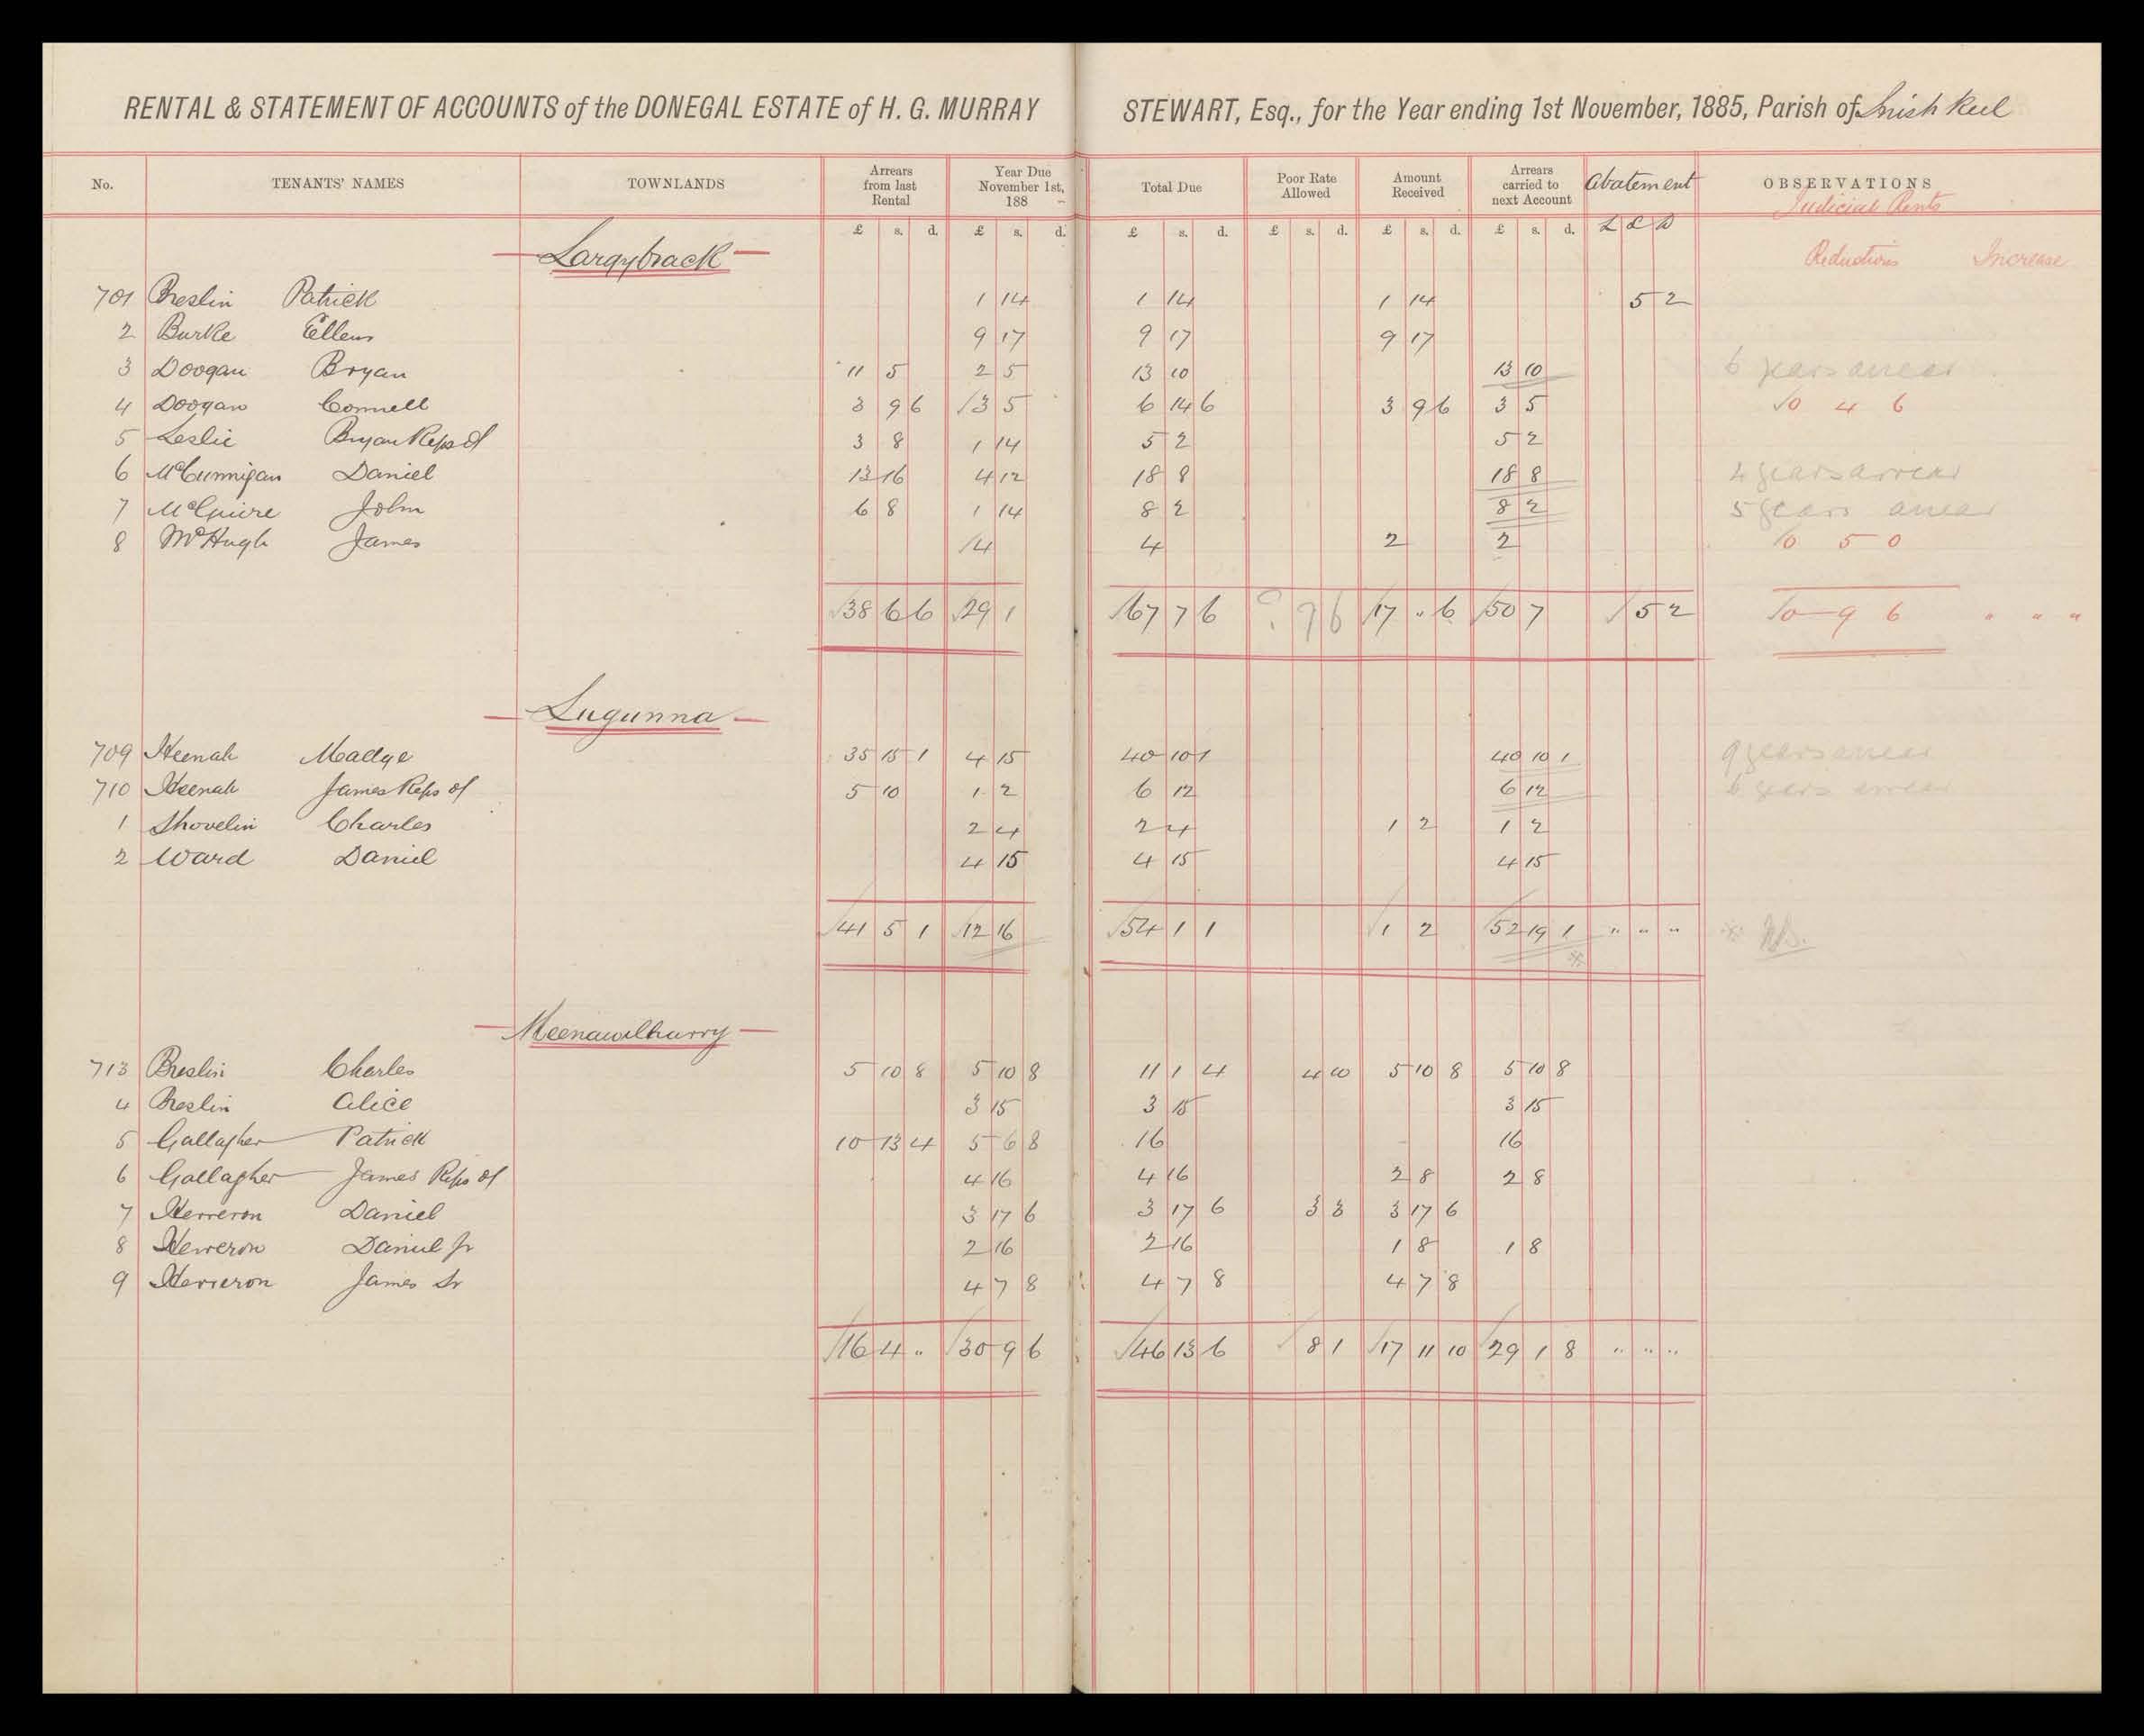 RENTAL & STATEMENT OF ACCOUNTS of the DONEGAL ESTATE of H. G. MURRAY STEWART, Esq., for the Year ending 1st November, 1885, Parish of Inishkeel
No. TENANTS' NAMES TOWNLANDS Arrears from last Rental Year Due November 1st, 188 Total Due Poor Rate Allowed Amount Received Arrears carried to next Account Abatement OBSERVATIONS
Judicial Rents
£ s. d. £ s. d. £ s. d. £ s. d. £ s. d. £ s. d. £ S D
Largybrack Reductions Increase
701 Breslin Patrick 1 14 1 14 1 14 5 2
2 Burke Ellen 9 17 9 17 9 17
3 Doogan Bryan 11 5 2 5 13 10 13 10 6 years arrear
4 Doogan Connell 3 9 6 /3 5 6 14 6 3 9 6 3 5 √0 4 6
5 Leslie Bryan Reps of 3 8 1 14 5 2 5 2
6 McCunnigan Daniel 13 16 4 12 18 8 18 8 4 years arrear
7 McGuire John 6 8 1 14 8 2 8 2 5 years arrear
8 McHugh James /4 4 2 2 √0 5 0
√38 6 6 √29 1 √67 7 6 ? 9 6 √17 " 6 √50 7 √5 2 √0 9 6 " " "
Lugunna
709 Heenah Madge 35 15 1 4 15 40 10 1 40 10 1 9 years arrear
710 Heenah James Reps of 5 10 1 2 6 12 6 12 6 years arrear
1 Shovelin Charles 2 4 2 4 1 2 1 2
2 Ward Daniel 4 15 4 15 4 15
√41 5 1 √12 16 √54 1 1 √1 2 √52 19 1 " " "
Meenawilhurry
713 Breslin Charles 5 10 8 5 10 8 11 1 4 4 10 5 10 8 5 10 8
4 Breslin Alice 3 15 3 15 3 15
5 Gallagher Patrick 10 13 4 5 6 8 16 16
6 Gallagher James Reps of 4 16 4 16 2 8 2 8
7 Herreron Daniel 3 17 6 3 17 6 3 3 3 17 6
8 Herreron Daniel Jr 2 16 2 16 1 8 1 8
9 Herreron James Sr 4 7 8 4 7 8 4 7 8
√16 4 " √30 9 6 √46 13 6 √8 1 √17 11 10 √29 1 8 " " "